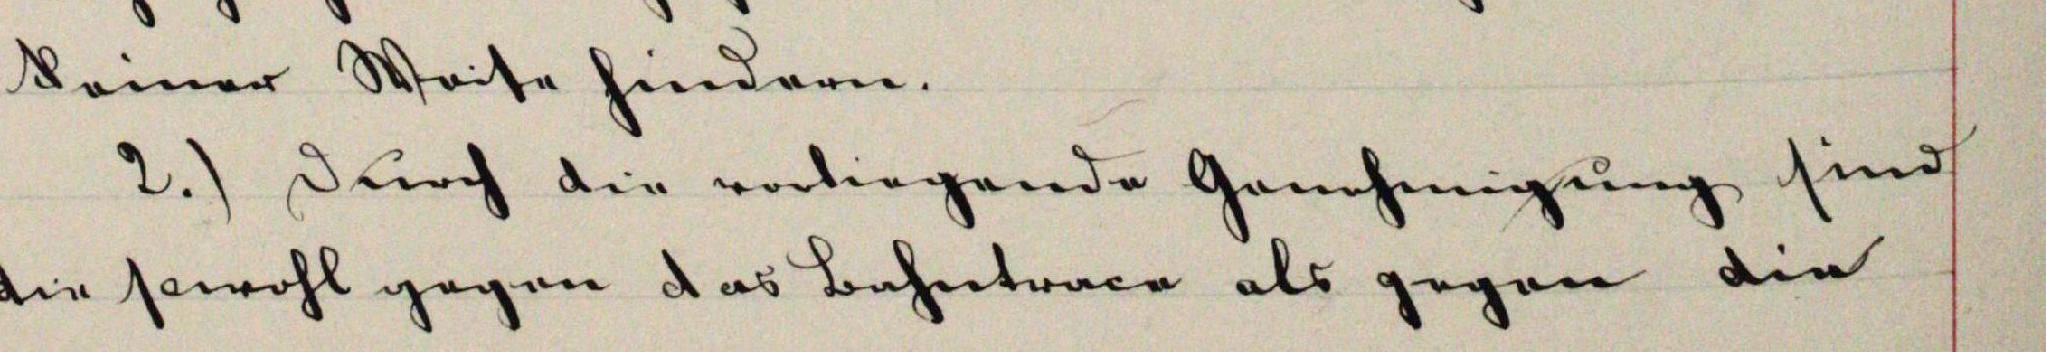 keiner Weise hindern.
2.) Durch die vorliegende Genehmigung sind
die sowohl gegen das Bahntrace als gegen die